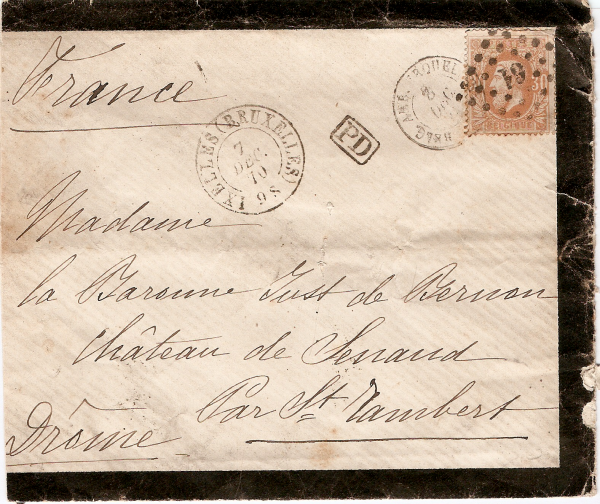 France
IXELLES (BRUXELLES)
7
DEC.
10
9S
PD
8
DEC
64
30
Madame
la Baronne Just de Bernon
Château de Senaud
Par St Rambert
Drôme